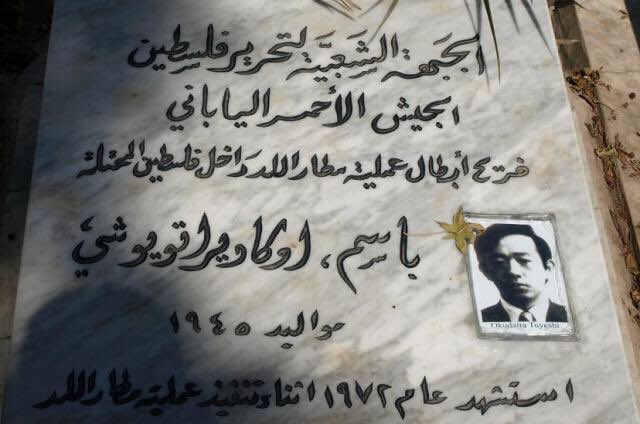 الجبهة الشعبية لتحرير فلسطين
الجيش الأحمر الياباني
فرع أبطال عملية مطار اللد داخل فلسطين المحتلة
باسم، اوكاديرا تويوشي
Okudaira Tuyeshi
مواليد ١٩٤٥
استشهد عام ١٩٧٢ اثناء تنفيذ عملية مطار اللد